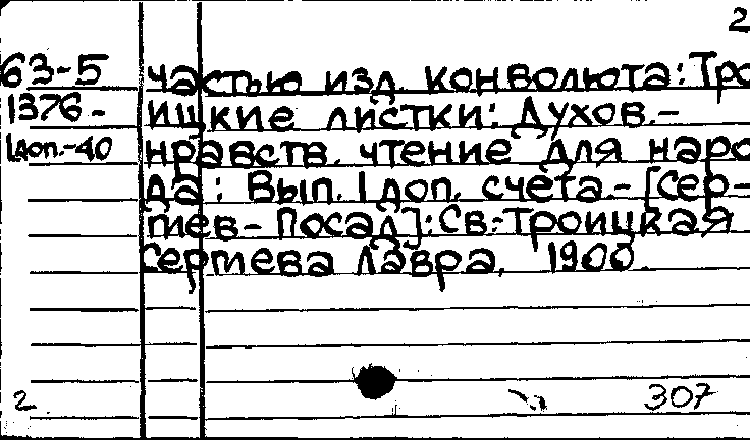 2
63-5 частью изд. конволюта: Тро
1376- ицкие листки: Духов.-
1доп.-40 нравств. чтение для наро
да: Вып. 1 доп. счета.- [Сер-
гиев-Посад]: Св.-Троицкая
Сергиева лавра, 1900.
2 307